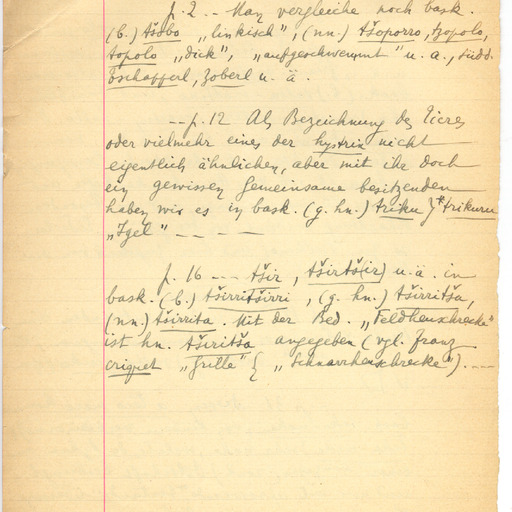 p. 2 -- Man vergleiche noch bask.
(b.) tšobo „linkisch", (nn.) tšoporro, tzopolo,
topolo „dick", „aufgeschwemmt" u. a., südd.
Tschopperl, Zoberl u. ä.
--- p. 12 Als Bezeichnung des Tieres
oder vielmehr eines der hystrix nicht
eigentlich ähnlichen, aber mit ihr doch
ein gewisses Gemeinsame besitzenden
haben wir es in bask. (g. hn.) triku } *trikuru
„Igel" - - - -
p. 16 --- tšir, tširtš(ir) u. ä. in
bask. (b.) tširritširri, (g. hn.) tširritša,
(nn.) tširrita. Mit der Bed. „Feldheuschrecke"
ist hn. tširitša angegeben (vgl. franz.
criquet „Grille" { „Schnarrheuschrecke"). ---